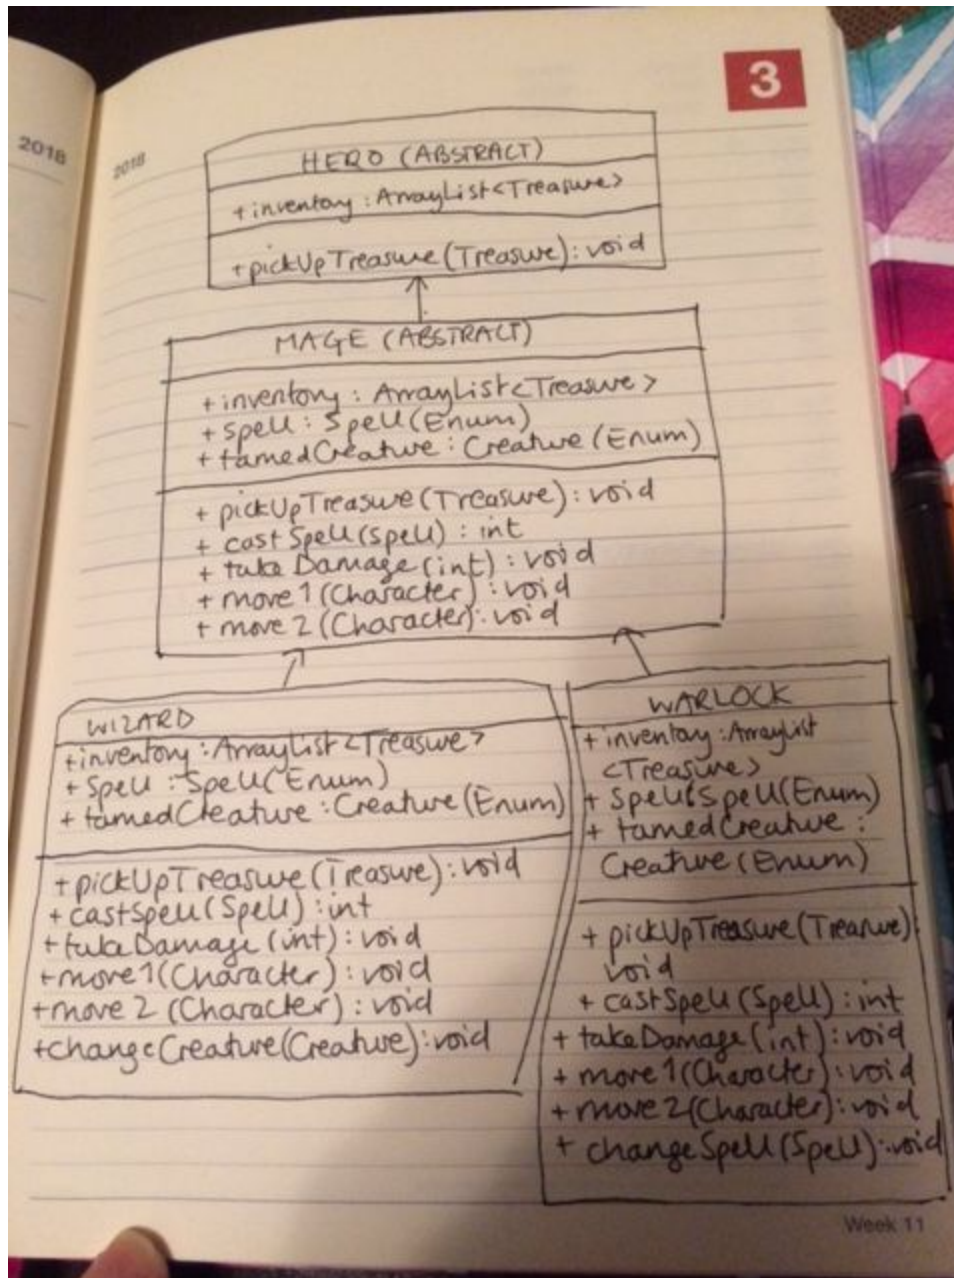 3
2018
2018
HERO (ABSTRACT)
+inventory : ArrayList<Treasure>
+pickUpTreasure(Treasure): void
MAGE (ABSTRACT)
+inventory : ArrayList<Treasure>
+ spell : Spell(Enum)
+ tamedCreature : Creature (Enum)
+ pickUpTreasure(Treasure) : void
+ cast Spell(Spell) : int
+ take Damage (int) : void
+ move 1 (Character) : void
+ move 2 (Character): void
WIZARD
+inventory :ArrayList<Treasure>
+ Spell : Spell(Enum)
+ tamedCreature :Creature (Enum)
+pickUpTreasure(Treasure): void
+castSpell(Spell) : int
+takeDamage (int): void
+move1(Character) : void
+move 2 (Character) : void
+changeCreature(Creature):void
WARLOCK
+ inventory :Arraylist
<Treasure>
+ Spell:Spell(Enum)
+ tamedCreature :
Creature (Enum)
+ pickUpTreasure(Treasure):
void
+ castSpell(Spell) : int
+ takeDamage (int): void
+ move 1(Character): void
+ move 2(Character): void
+ changeSpell(Spell):void
Week 11